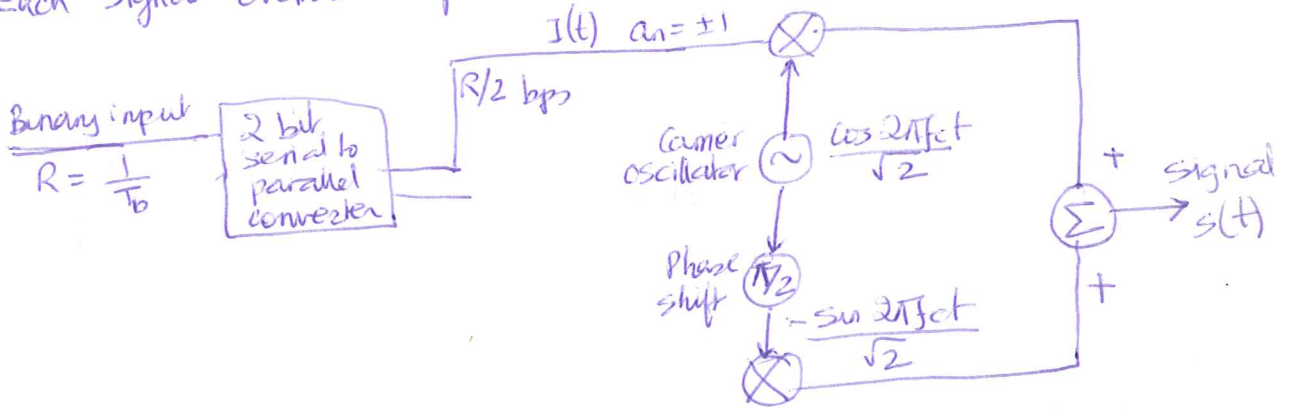 Each signal
I(t) an = ±1
R/2 bps
Binary input
R = 1/Tb
2 bit
serial to
parallel
converter
Carrier
oscillator
~
cos 2πfct/√2
Phase
shift
π/2
-sin 2πfct/√2
+
Σ
+
signal
s(t)